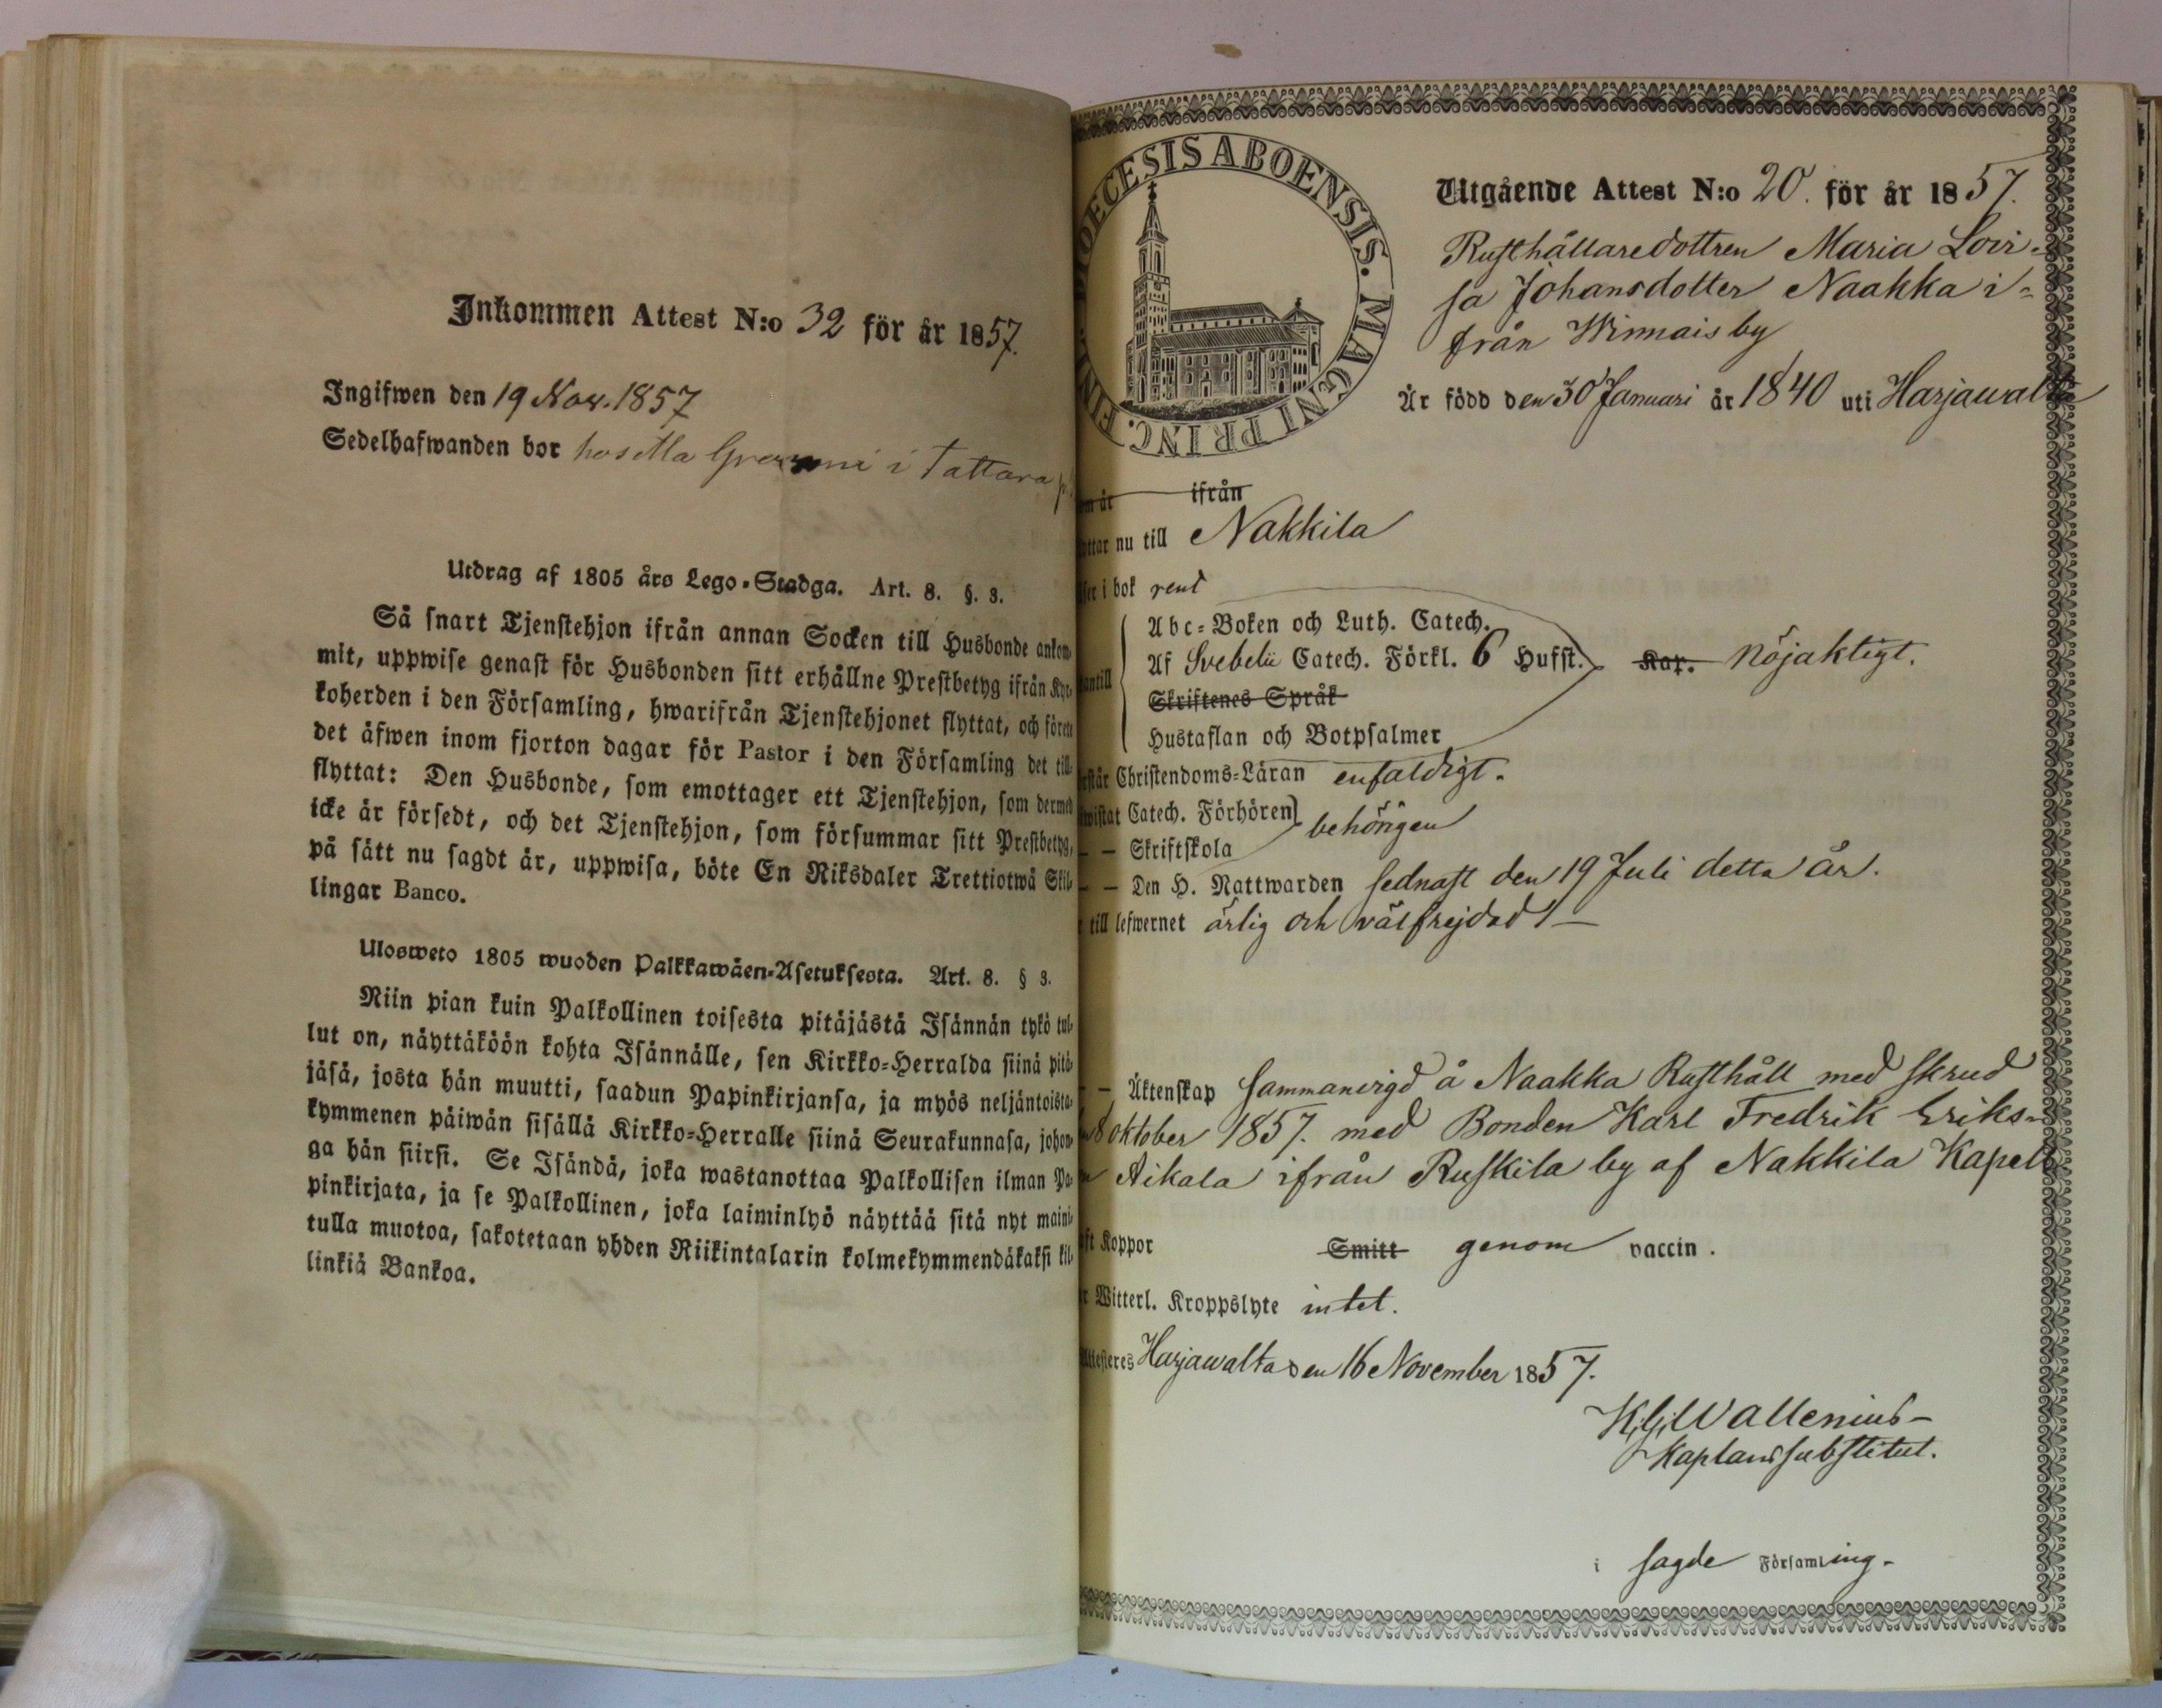 Inkommen Attest N:o 32 för år 1857.
Ingifwen den 19 Nov. 1857
Sedelhafwanden bor hos i Tattara
Utdrag af 1805 års Lego-Stadga. Art. 8. §. 3.
Så snart Tjenstehjon ifrån annan Socken till Husbonde ankom-
mit, uppwise genast för Husbonden sitt erhållne Prestbetyg ifrån Kyr-
koherden i den Församling, hwarifrån Tjenstehjonet flyttat, och förete
det äfwen inom fjorton dagar för Pastor i den Församling det till-
flyttat: Den Husbonde, som emottager ett Tjenstehjon, som dermed
icke är försedt, och det Tjenstehjon, som försummar sitt Prestbetyg,
på sätt nu sagdt är, uppwisa, böte En Riksdaler Trettiotwå Skil-
lingar Banco.
Ulosweto 1805 wuoden Palkkawäen-Asetuksesta. Art. 8. § 3.
Niin pian kuin Palkollinen toisesta pitäjästä Isännän tykö tul-
lut on, näyttäköön kohta Isännälle, sen Kirkko-Herralda siinä pitä-
jäsä, josta hän muutti, saadun Papinkirjansa, ja myös neljäntoista-
kymmenen päiwän sisällä Kirkko-Herralle siinä Seurakunnasa, johon-
ga hän siirsi. Se Isändä, joka wastanottaa Palkollisen ilman Pa-
pinkirjata, ja se Palkollinen, joka laiminlyö näyttää sitä nyt maini-
tulla muotoa, sakotetaan yhden Riikintalarin kolmekymmendäkaksi kil-
linkiä Bankoa.
DIOECESIS ABOENSIS. MAGNI PRINC. FINL.
Utgående Attest N:o 20. för år 1857.
Rusthållaredottren Maria Lovi-
sa Johansdotter Naakka i-
från Winnais by
Är född den 30 Januari år 1840 uti Harjawalta
om år ifrån
ttar nu till Nakkila
ser i bok rent
Abc-Boken och Luth. Catech.
Af Svebelii Catech. Förkl. 6 Hufst. Kap. nöjaktigt.
antill
Skriftenes Språk
Hustaflan och Botpsalmer
rstår Christendoms-Läran enfaldigt.
wistat Catech. Förhören
behörigen
— — Skriftskola
— — Den H. Nattwarden sednast den 19 Juli detta år.
r till lefwernet ärlig och välfrejdad
— — Äktenskap sammanvigd å Naakka Rusthåll med skrud
8 oktober 1857. med Bonden Karl Fredrik Eriks-
n Aikala ifrån Ruskila by af Nakkila Kapell
ft Koppor Smitt genom vaccin.
r Witterl. Kroppslyte intet.
Attesteres Harjawalta den 16 November 1857.
Wallenius
Kaplanssubstitut.
i sagde Församling.